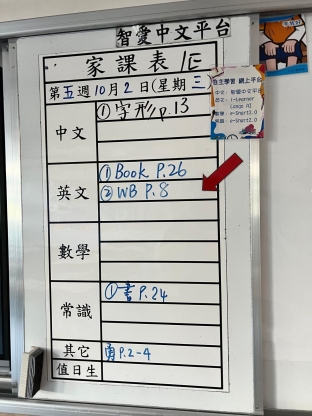 智愛中文平台
家課表 1E
第五週10月2日(星期三)
中文
① 字形 p.13
英文
① Book P.26
② WB P.8
數學
常識
① 書 P.24
其它
P.2-4
值日生
自主學習 網上平台
中文：智愛中文平台
英文：i-Learner